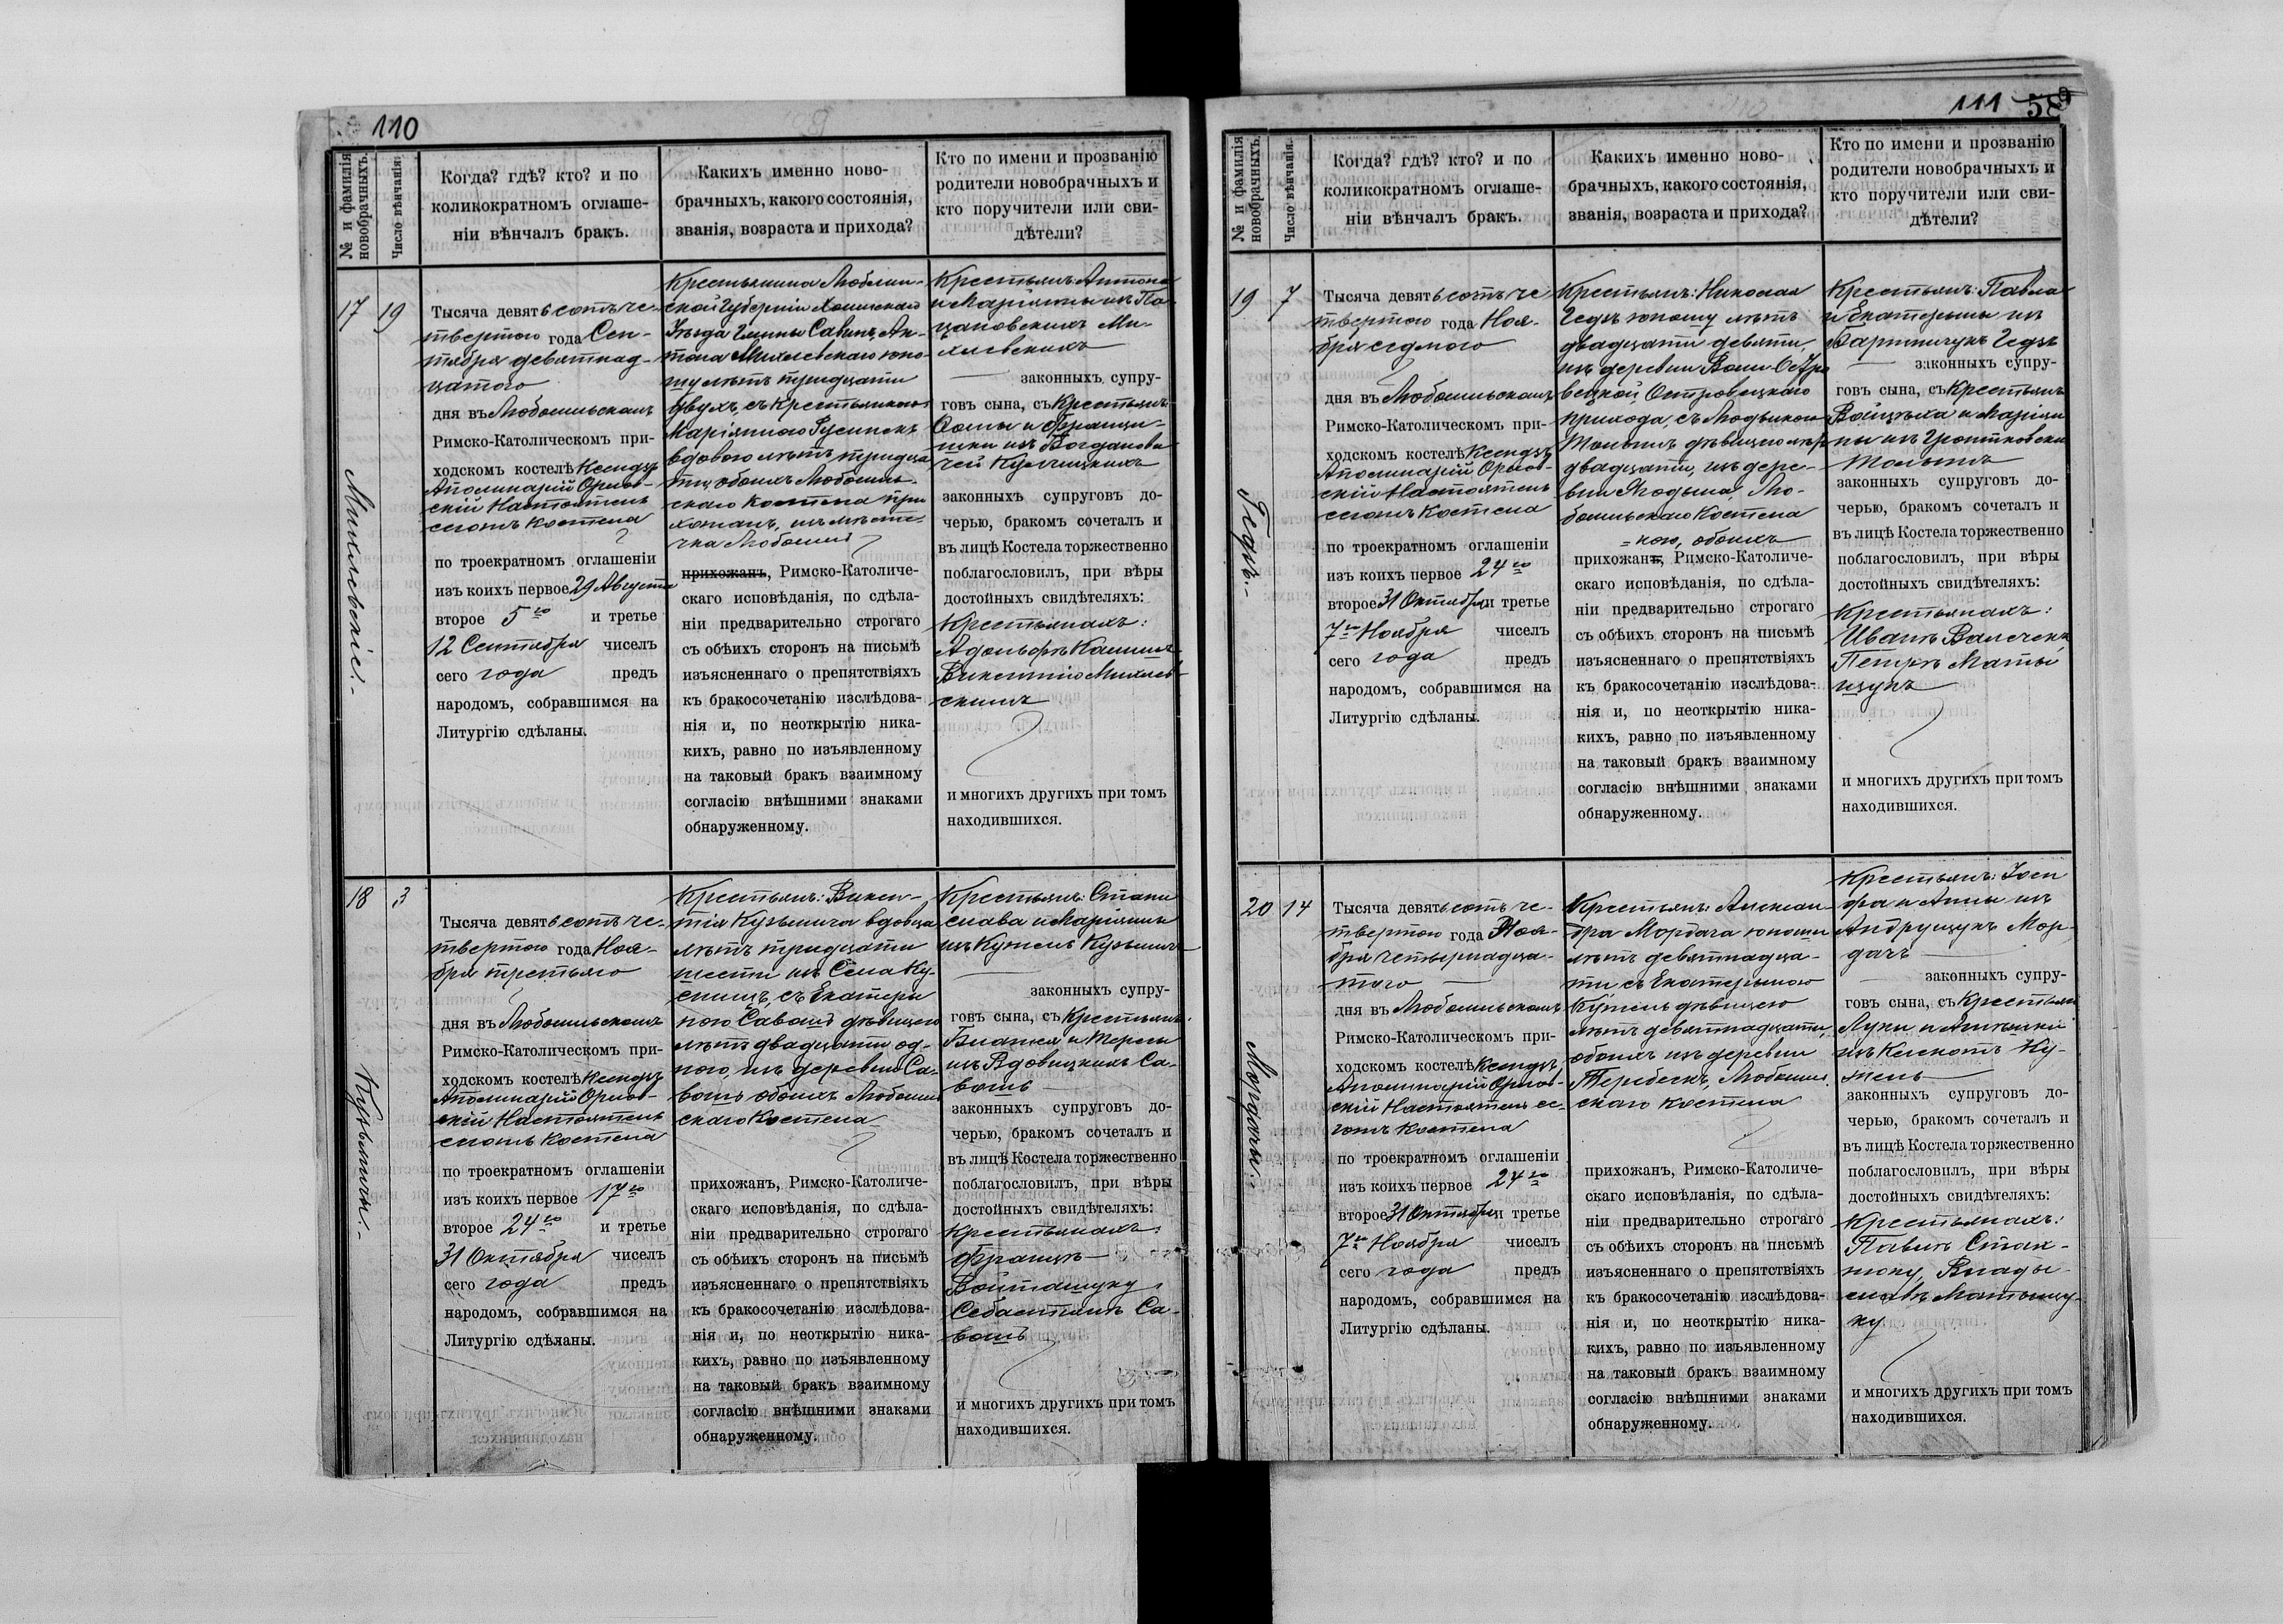 110
№ и фамилія новобрачныхъ.
Число вѣнчанія.
Когда? гдѣ? кто? и по
коликократномъ оглаше-
ніи вѣнчалъ бракъ.
Какихъ именно ново-
брачныхъ, какого состоянія,
званія, возраста и прихода?
Кто по имени и прозванію
родители новобрачныхъ и
кто поручители или сви-
дѣтели?
17
19
Михалевскіе.-
Тысяча девятьсотъ че-
твертого года Сен-
тября девятнад-
цатого
дня въ Любомльскомъ
Римско-Католическомъ при-
ходскомъ костелѣ Ксендзъ
Аполинарій Орлов-
скій Настоятель
сегожъ костела
по троекратномъ оглашеніи
изъ коихъ первое 29 Августа
второе 5го и третье
12 Сентября чиселъ
сего года предъ
народомъ, собравшимся на
Литургію сдѣланы.
Крестьянина Люблин-
ской Губерніи Холмскаго
Уѣзда Гмины Савинъ, Ан-
тона Михалевскаго юно-
шу лѣтъ тридцати
двухъ, съ крестьянкою
Маріянною Русинекъ
вдовою лѣтъ тридца
ти, обоихъ Любомль-
скаго костела при
хожанъ, изъ мѣсте-
чка Любомля
прихожанъ, Римско-Католиче-
скаго исповѣданія, по сдѣла-
ніи предварительно строгаго
съ обѣихъ сторонъ на письмѣ
изъясненнаго о препятствіяхъ
къ бракосочетанію изслѣдова-
нія и, по неоткрытію ника-
кихъ, равно по изъявленному
на таковый бракъ взаимному
согласію внѣшними знаками
обнаруженному.
Крестьянъ: Антона
и Маріянны изъ Па-
цановскихъ Ми-
халевскихъ
законныхъ супру-
говъ сына, съ Крестьянъ
Ѳомы и Францим-
шки изъ Богданови-
чей Кульчицкихъ
законныхъ супруговъ до-
черью, бракомъ сочеталъ и
въ лицѣ Костела торжественно
поблагословилъ, при вѣры
достойныхъ свидѣтеляхъ:
Крестьянахъ:
Адольфъ
Викентію Михалев-
скимъ
и многихъ другихъ при томъ
находившихся.
18
3
Кузьмичи.-
Тысяча девятьсотъ че-
твертого года Ноя-
бря третьяго
дня въ Любомльскомъ
Римско-Католическомъ при-
ходскомъ костелѣ Ксендзъ
Аполинарій Орлов-
скій Настоятель
сегожъ костела
по троекратномъ оглашеніи
изъ коихъ первое 17го
второе 24го и третье
31 Октября чиселъ
сего года предъ
народомъ, собравшимся на
Литургію сдѣланы.
Крестьянъ: Викен-
тія Кузьмича вдовца
лѣтъ тридцати
шести изъ Села Ку-
снищъ, съ Екатери
ною Савошъ дѣвицею
лѣтъ двадцати од-
ного, изъ деревни Са-
вошъ обоихъ Любомль
скаго Костела
прихожанъ, Римско-Католиче-
скаго исповѣданія, по сдѣла-
ніи предварительно строгаго
съ обѣихъ сторонъ на письмѣ
изъясненнаго о препятствіяхъ
къ бракосочетанію изслѣдова-
нія и, по неоткрытію ника-
кихъ, равно по изъявленному
на таковый бракъ взаимному
согласію внѣшними знаками
обнаруженному.
Крестьянъ: Стани
слава и Маріянны
изъ Кужель Кузьмичъ
законныхъ супру-
говъ сына, съ Крестьянъ
Блажея и Терезы
изъ Вдовицкихъ Са-
вошъ
законныхъ супруговъ до-
черью, бракомъ сочеталъ и
въ лицѣ Костела торжественно
поблагословилъ, при вѣры
достойныхъ свидѣтеляхъ:
Крестьянахъ:
Францъ
Войташуку
Себастьянъ Са-
вошъ
и многихъ другихъ при томъ
находившихся.
111
589
№ и фамилія новобрачныхъ.
Число вѣнчанія.
Когда? гдѣ? кто? и по
коликократномъ оглаше-
ніи вѣнчалъ бракъ.
Какихъ именно ново-
брачныхъ, какого состоянія,
званія, возраста и прихода?
Кто по имени и прозванію
родители новобрачныхъ и
кто поручители или сви-
дѣтели?
19
7
Гедзъ.-
Тысяча девятьсотъ че-
твертого года Ноя-
бря седмого
дня въ Любомльскомъ
Римско-Католическомъ при-
ходскомъ костелѣ Ксендзъ
Аполинарій Орлов-
скій Настоятель
сегожъ костела
по троекратномъ оглашеніи
изъ коихъ первое 24го
второе 31 Октября и третье
7го Ноября чиселъ
сего года предъ
народомъ, собравшимся на
Литургію сдѣланы.
Крестьянъ: Николая
Гедзъ юношу лѣтъ
двадцати девяти,
изъ деревни Воли Остро
вецкой Островецкаго
прихода, съ Людвикою
дѣвицею лѣтъ
двадцати, изъ дере-
вни Ягодына, Лю-
бомльскаго Костела
=ною, обоихъ
прихожанъ, Римско-Католиче-
скаго исповѣданія, по сдѣла-
ніи предварительно строгаго
съ обѣихъ сторонъ на письмѣ
изъясненнаго о препятствіяхъ
къ бракосочетанію изслѣдова-
нія и, по неоткрытію ника-
кихъ, равно по изъявленному
на таковый бракъ взаимному
согласію внѣшними знаками
обнаруженному.
Крестьянъ: Павла
и Екатерины изъ
Бартничукъ Гедзъ
законныхъ супру-
говъ сына, съ Крестьянъ
Войцѣха и Маріян
ны изъ
законныхъ супруговъ до-
черью, бракомъ сочеталъ и
въ лицѣ Костела торжественно
поблагословилъ, при вѣры
достойныхъ свидѣтеляхъ:
Крестьянахъ:
Иванъ
Петръ Матый
щукъ
и многихъ другихъ при томъ
находившихся.
20
14
Мордачы.-
Тысяча девятьсотъ че-
твертого года Ноя-
бря четырнадца-
того
дня въ Любомльскомъ
Римско-Католическомъ при-
ходскомъ костелѣ Ксендзъ
Аполинарій Орлов-
скій Настоятель се-
гожъ костела
по троекратномъ оглашеніи
изъ коихъ первое 24го
второе 31 Октября и третье
7го Ноября чиселъ
сего года предъ
народомъ, собравшимся на
Литургію сдѣланы.
Крестьянъ: Алексан
дра Мордача юноши
лѣтъ девятнадца-
ти съ Екатериною
Кужель дѣвицею
лѣтъ девятнадцати,
обоихъ изъ деревни
Теребеекъ, Любомль
скаго костела
прихожанъ, Римско-Католиче-
скаго исповѣданія, по сдѣла-
ніи предварительно строгаго
съ обѣихъ сторонъ на письмѣ
изъясненнаго о препятствіяхъ
къ бракосочетанію изслѣдова-
нія и, по неоткрытію ника-
кихъ, равно по изъявленному
на таковый бракъ взаимному
согласію внѣшними знаками
обнаруженному.
Крестьянъ: Іоси
фа и Анны изъ
Андрущукъ Мор-
дачъ
законныхъ супру-
говъ сына, съ Крестьян
Луки и Агнѣшки
изъ Ку-
жель
законныхъ супруговъ до-
черью, бракомъ сочеталъ и
въ лицѣ Костела торжественно
поблагословилъ, при вѣры
достойныхъ свидѣтеляхъ:
Крестьянахъ:
Павелъ Стах-
нюку, Влады-
славъ Матыщу-
ку
и многихъ другихъ при томъ
находившихся.